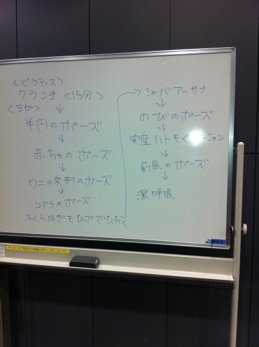 〈ピラティス〉
クランチ〈15分〉
〈ヨガ〉
↓
半円のポーズ
↓
赤ちゃんのポーズ
↓
ワニの変形のポーズ
↓
コアラのポーズ
↓
ふくらはぎもひざでたたく
→ シャバアーサナ
↓
のびのポーズ
↓
安座
↓
前屈のポーズ
↓
深呼吸